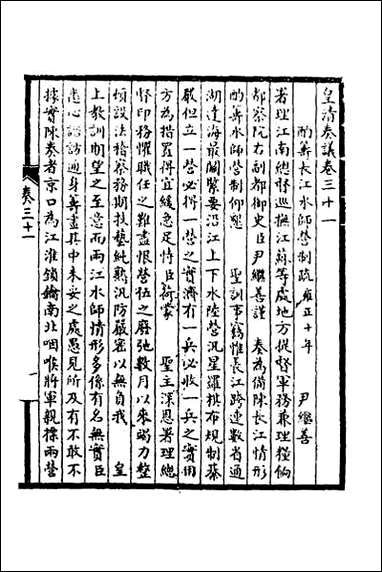 皇清奏議卷三十一
酌籌長江水師營制疏 雍正十年 尹繼善
署理江南總督巡撫江蘇等處地方提督軍務兼理糧餉
都察院右副都御史臣尹繼善謹 奏為備陳長江情形
酌籌水師營制仰懇 聖訓事竊惟長江跨連數省通
湖達海最關緊要沿江上下水陸營汛星羅棋布規制綦
嚴但立一營必得一營之實濟有一兵必收一兵之實用
方為措置得宜緩急足恃臣荷蒙 聖主深恩署理總
督印務惟職任之難盡恨營伍之廢弛數月以來竭力整
頓設法稽察務期技藝純熟汛防嚴密以無負我 皇
上教訓期望之至意而兩江水師情形多係有名無實臣
悉心諮訪通身籌畫其中未妥之處愚見所及有不敢不
據實陳奏者京口為江淮鎖鑰南北咽喉將軍親標兩營
奏三十一
一